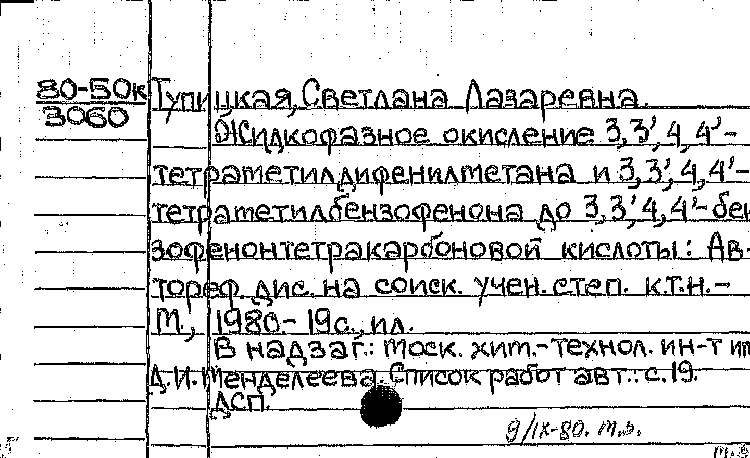 80-50к Тупицкая, Светлана Лазаревна.
3060
Жидкофазное окисление 3,3',4,4'-
тетраметилдифенилметана и 3,3',4,4'-
тетраметилбензофенона до 3,3',4,4'-бен
зофенонтетракарбоновой кислоты: Ав-
тореф. дис. на соиск. учен. степ. к.т.н.-
М., 1980.- 19с., ил.
В надзаг.: Моск. хим.-технол. ин-т им
Д.И.Менделеева. Список работ авт.: с.19.
ДСП.
9/IX-80. т.э.